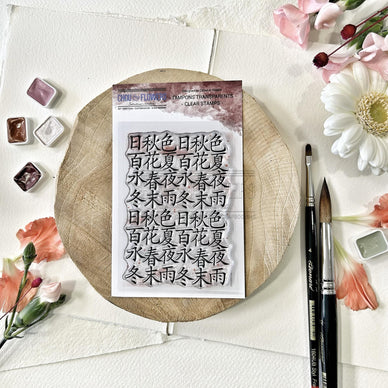 CHOU & FLOWERS
TAMPONS TRANSPARENTS
- CLEAR STAMPS
日秋色日秋色
百花夏百花夏
永春夜永春夜
冬末雨冬末雨
日秋色日秋色
百花夏百花夏
永春夜永春夜
冬末雨冬末雨